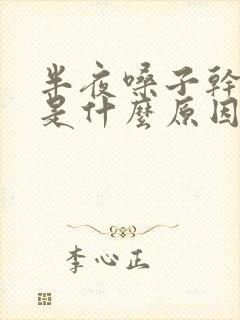 半夜嗓子幹
是什麼原因
李心正